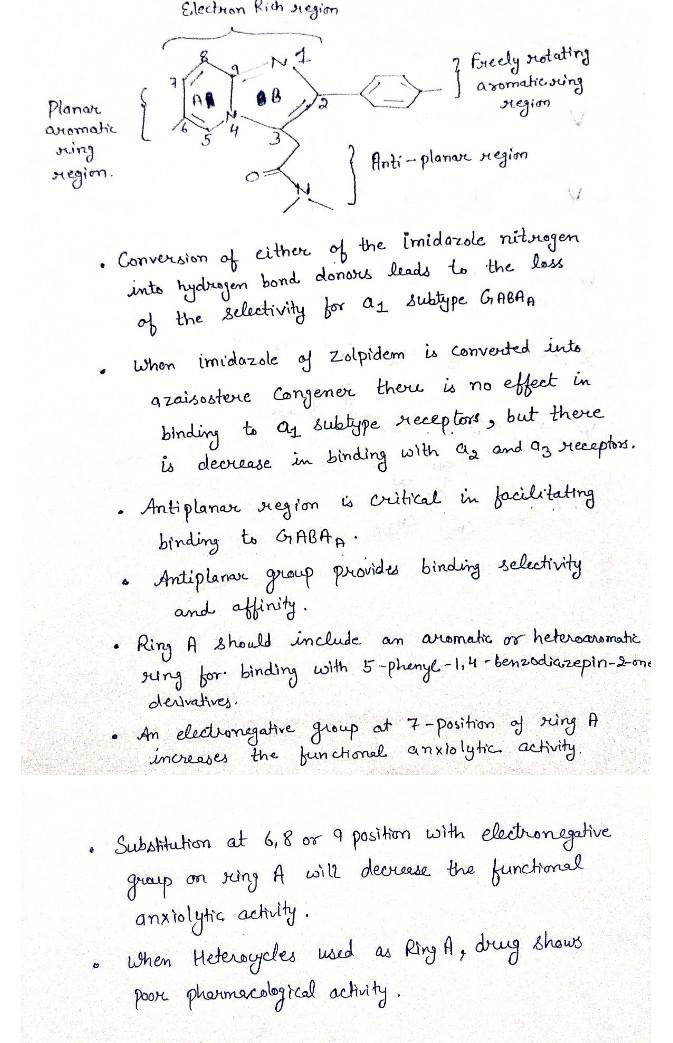 Electron Rich region
8
9
N 1
7
A
B
2
6
5
N
4
3
O
N
Planar
aromatic
ring
region.
Freely rotating
aromatic ring
region
Anti-planar region
• Conversion of either of the imidazole nitrogen
into hydrogen bond donors leads to the loss
of the selectivity for a1 subtype GABAA
• When imidazole of Zolpidem is converted into
azaisostere congener there is no effect in
binding to a1 subtype receptors, but there
is decrease in binding with a2 and a3 receptors.
• Antiplanar region is critical in facilitating
binding to GABAA.
• Antiplanar group provides binding selectivity
and affinity.
• Ring A should include an aromatic or heteroaromatic
ring for binding with 5-phenyl-1,4-benzodiazepin-2-one
derivatives.
• An electronegative group at 7-position of ring A
increases the functional anxiolytic activity.
• Substitution at 6,8 or 9 position with electronegative
group on ring A will decrease the functional
anxiolytic activity.
• When Heterocycles used as Ring A, drug shows
poor pharmacological activity.